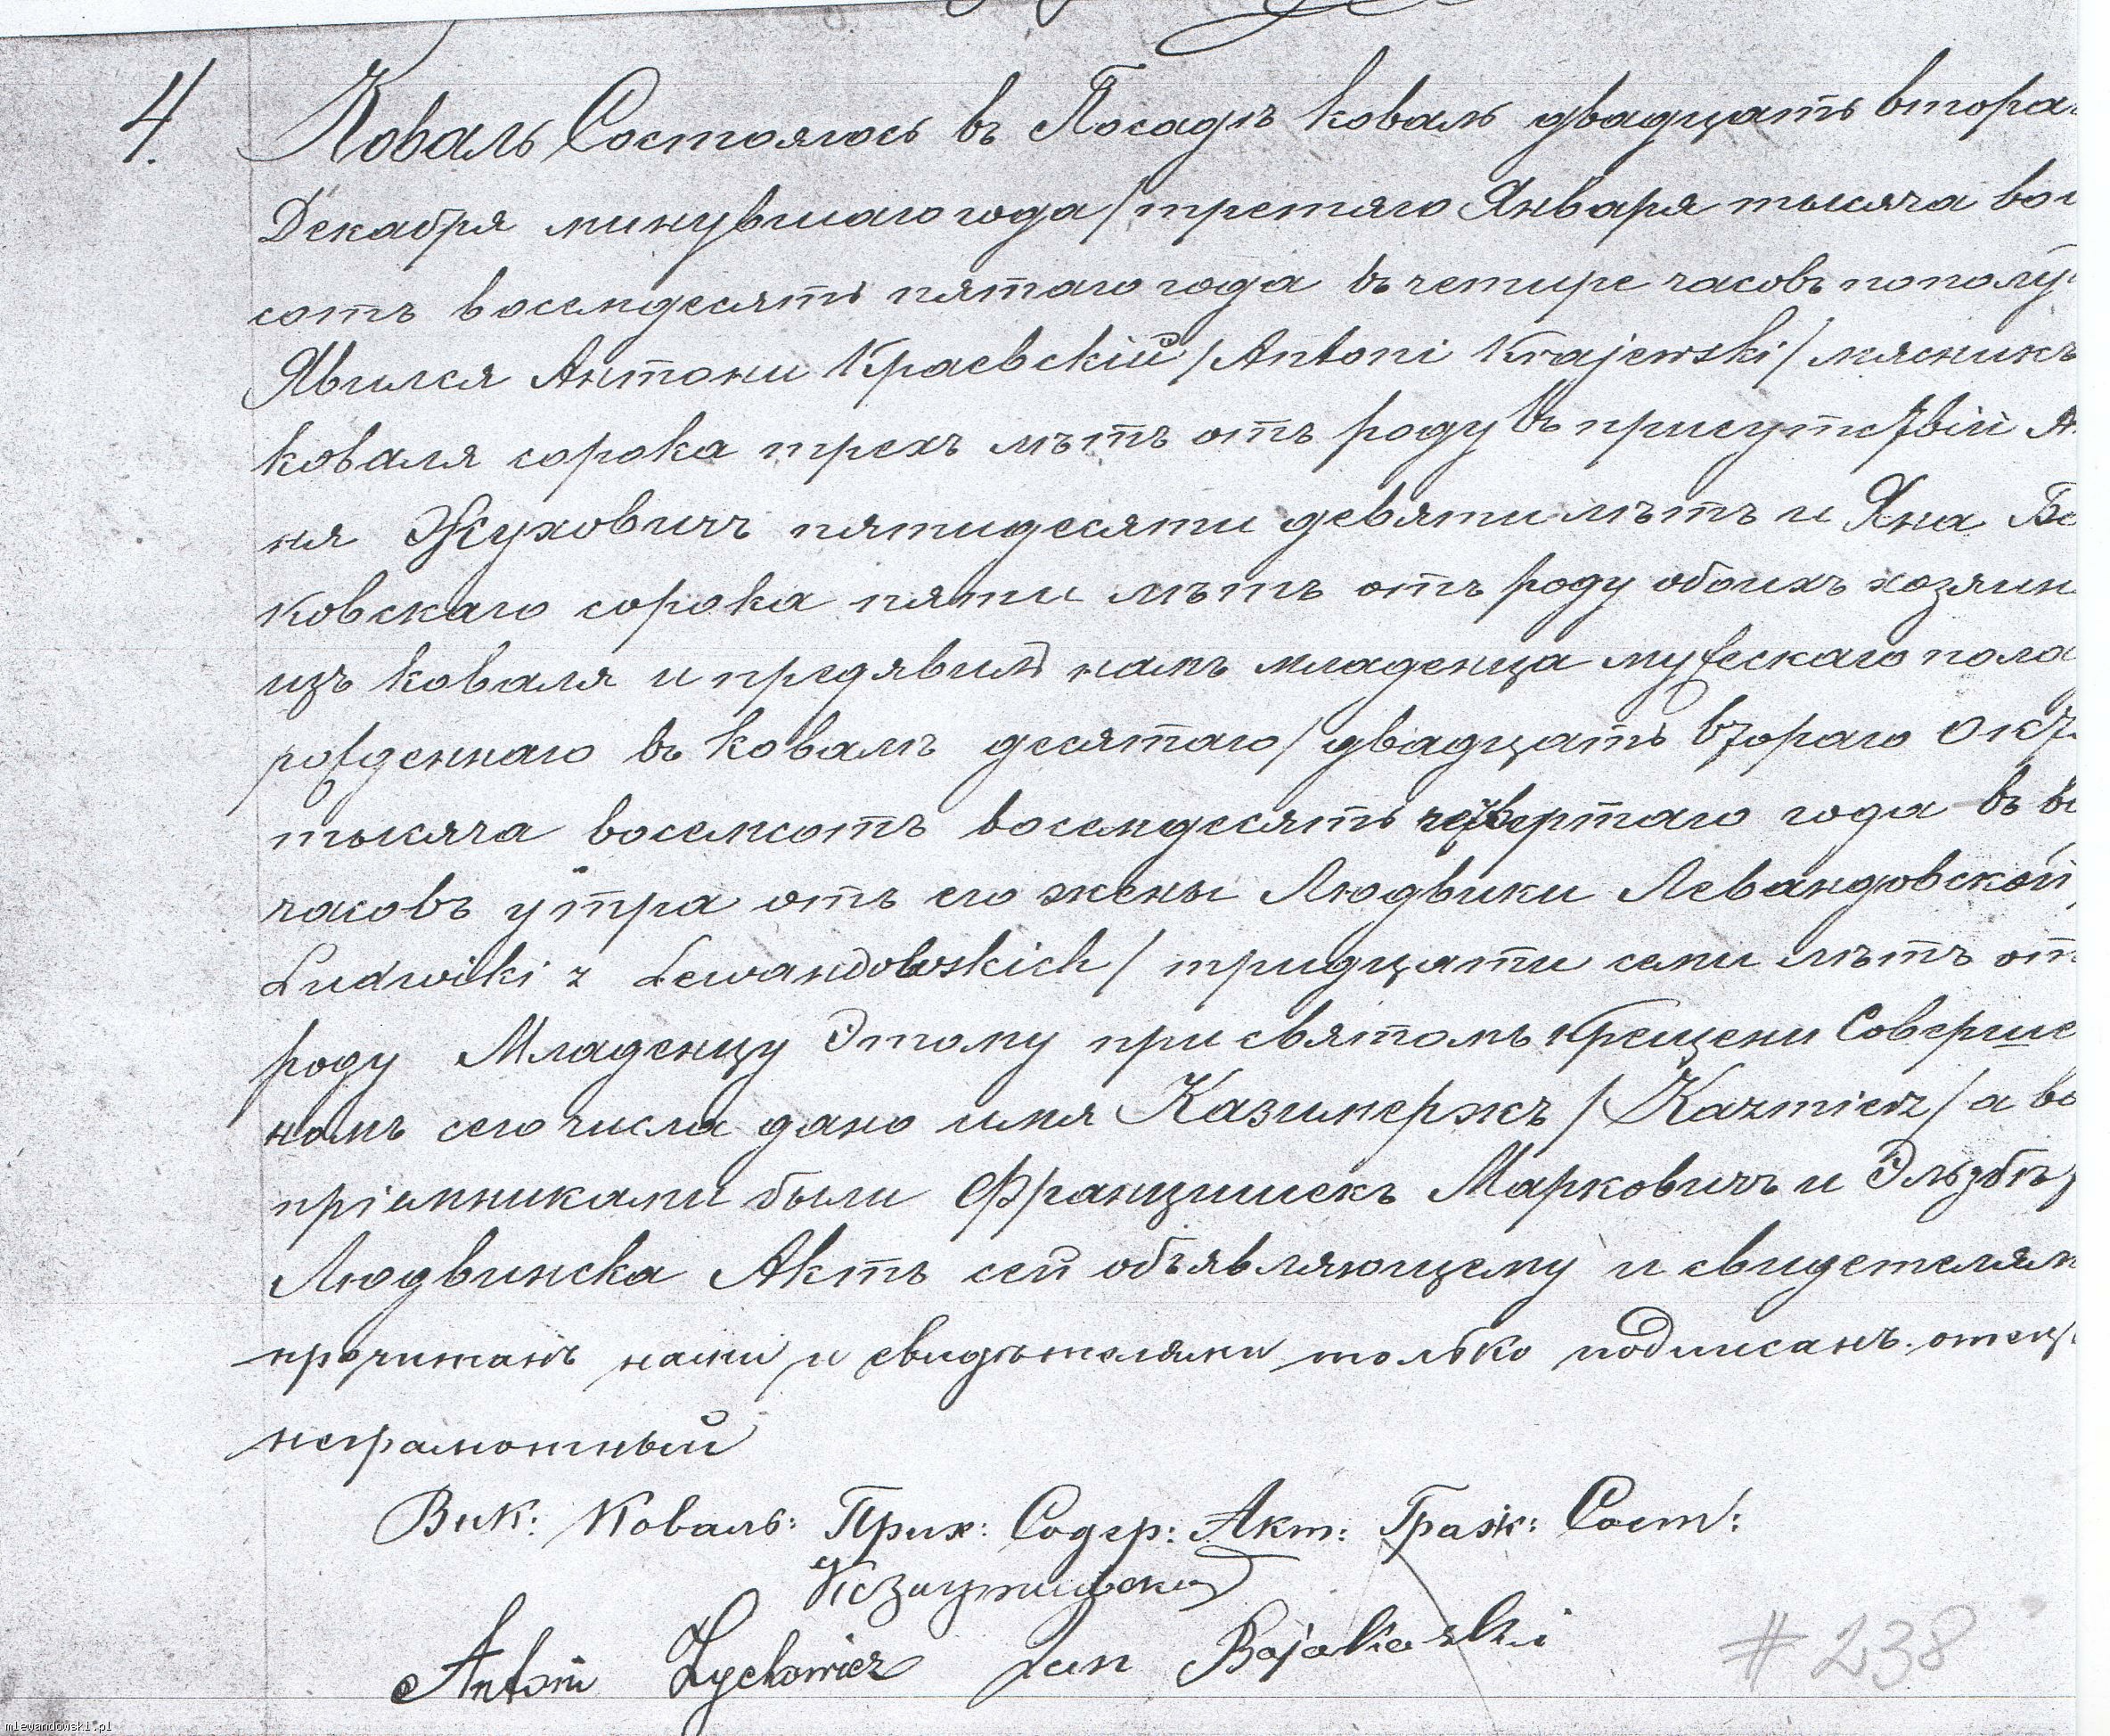 4.
Коваль Состоялось въ Посадѣ Коваль двадцать втора
Декабря минувшаго года / третяго Января тысяча вос
сотъ восемдесятъ пятаго года въ четире часовъ пополу
Явился Антони Краевскій / Antoni Krajewski / мясникъ
коваля сорока трехъ лѣтъ отъ роду въ присутствіи А
ня Жуховичъ пятидесяти девяти лѣтъ и Яна Бо
ковскаго сорока пяти лѣтъ отъ роду обоихъ хозяин
изъ коваля и предявилъ намъ младенца мужескаго пола
рожденнаго въ Ковалѣ десятаго / двадцать втораго Окт
тысяча восемсотъ восемдесятъ четвертаго года въ во
часовъ утра отъ его жены Людвики Левандовской /
Ludwiki z Lewandowskich / тридцати семи лѣтъ от
роду Младенцу Этому при святомъ крещени Соверше
номъ сего числа дано имя Казимержъ / Kazmierz / а во
пріемниками были Францишекъ Марковичъ и Эльзбѣ
Людвинска Актъ сей объявляющему и свидетелям
прочитанъ нами и свидѣтелями только подписанъ. отец
неграмотный
Вик: Коваль: Прих: Содер: Акт: Граж: Сост:
Antoni Zychowicz Jan Bojakowski
# 238
mlewandowski.pl